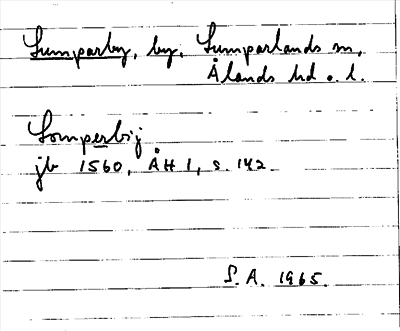 Sumparby, by, Lumparlands sn,
Ålands hd o. l.
Somperbij
jb 1560, ÅH 1, s. 142
S.A. 1965.